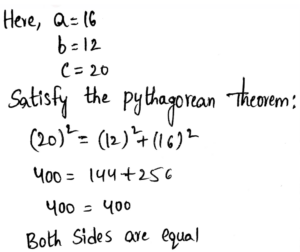 Here, a=16
b=12
c=20
Satisfy the pythagorean Theorem:
(20)²= (12)²+(16)²
400 = 144+256
400 = 400
Both Sides are equal